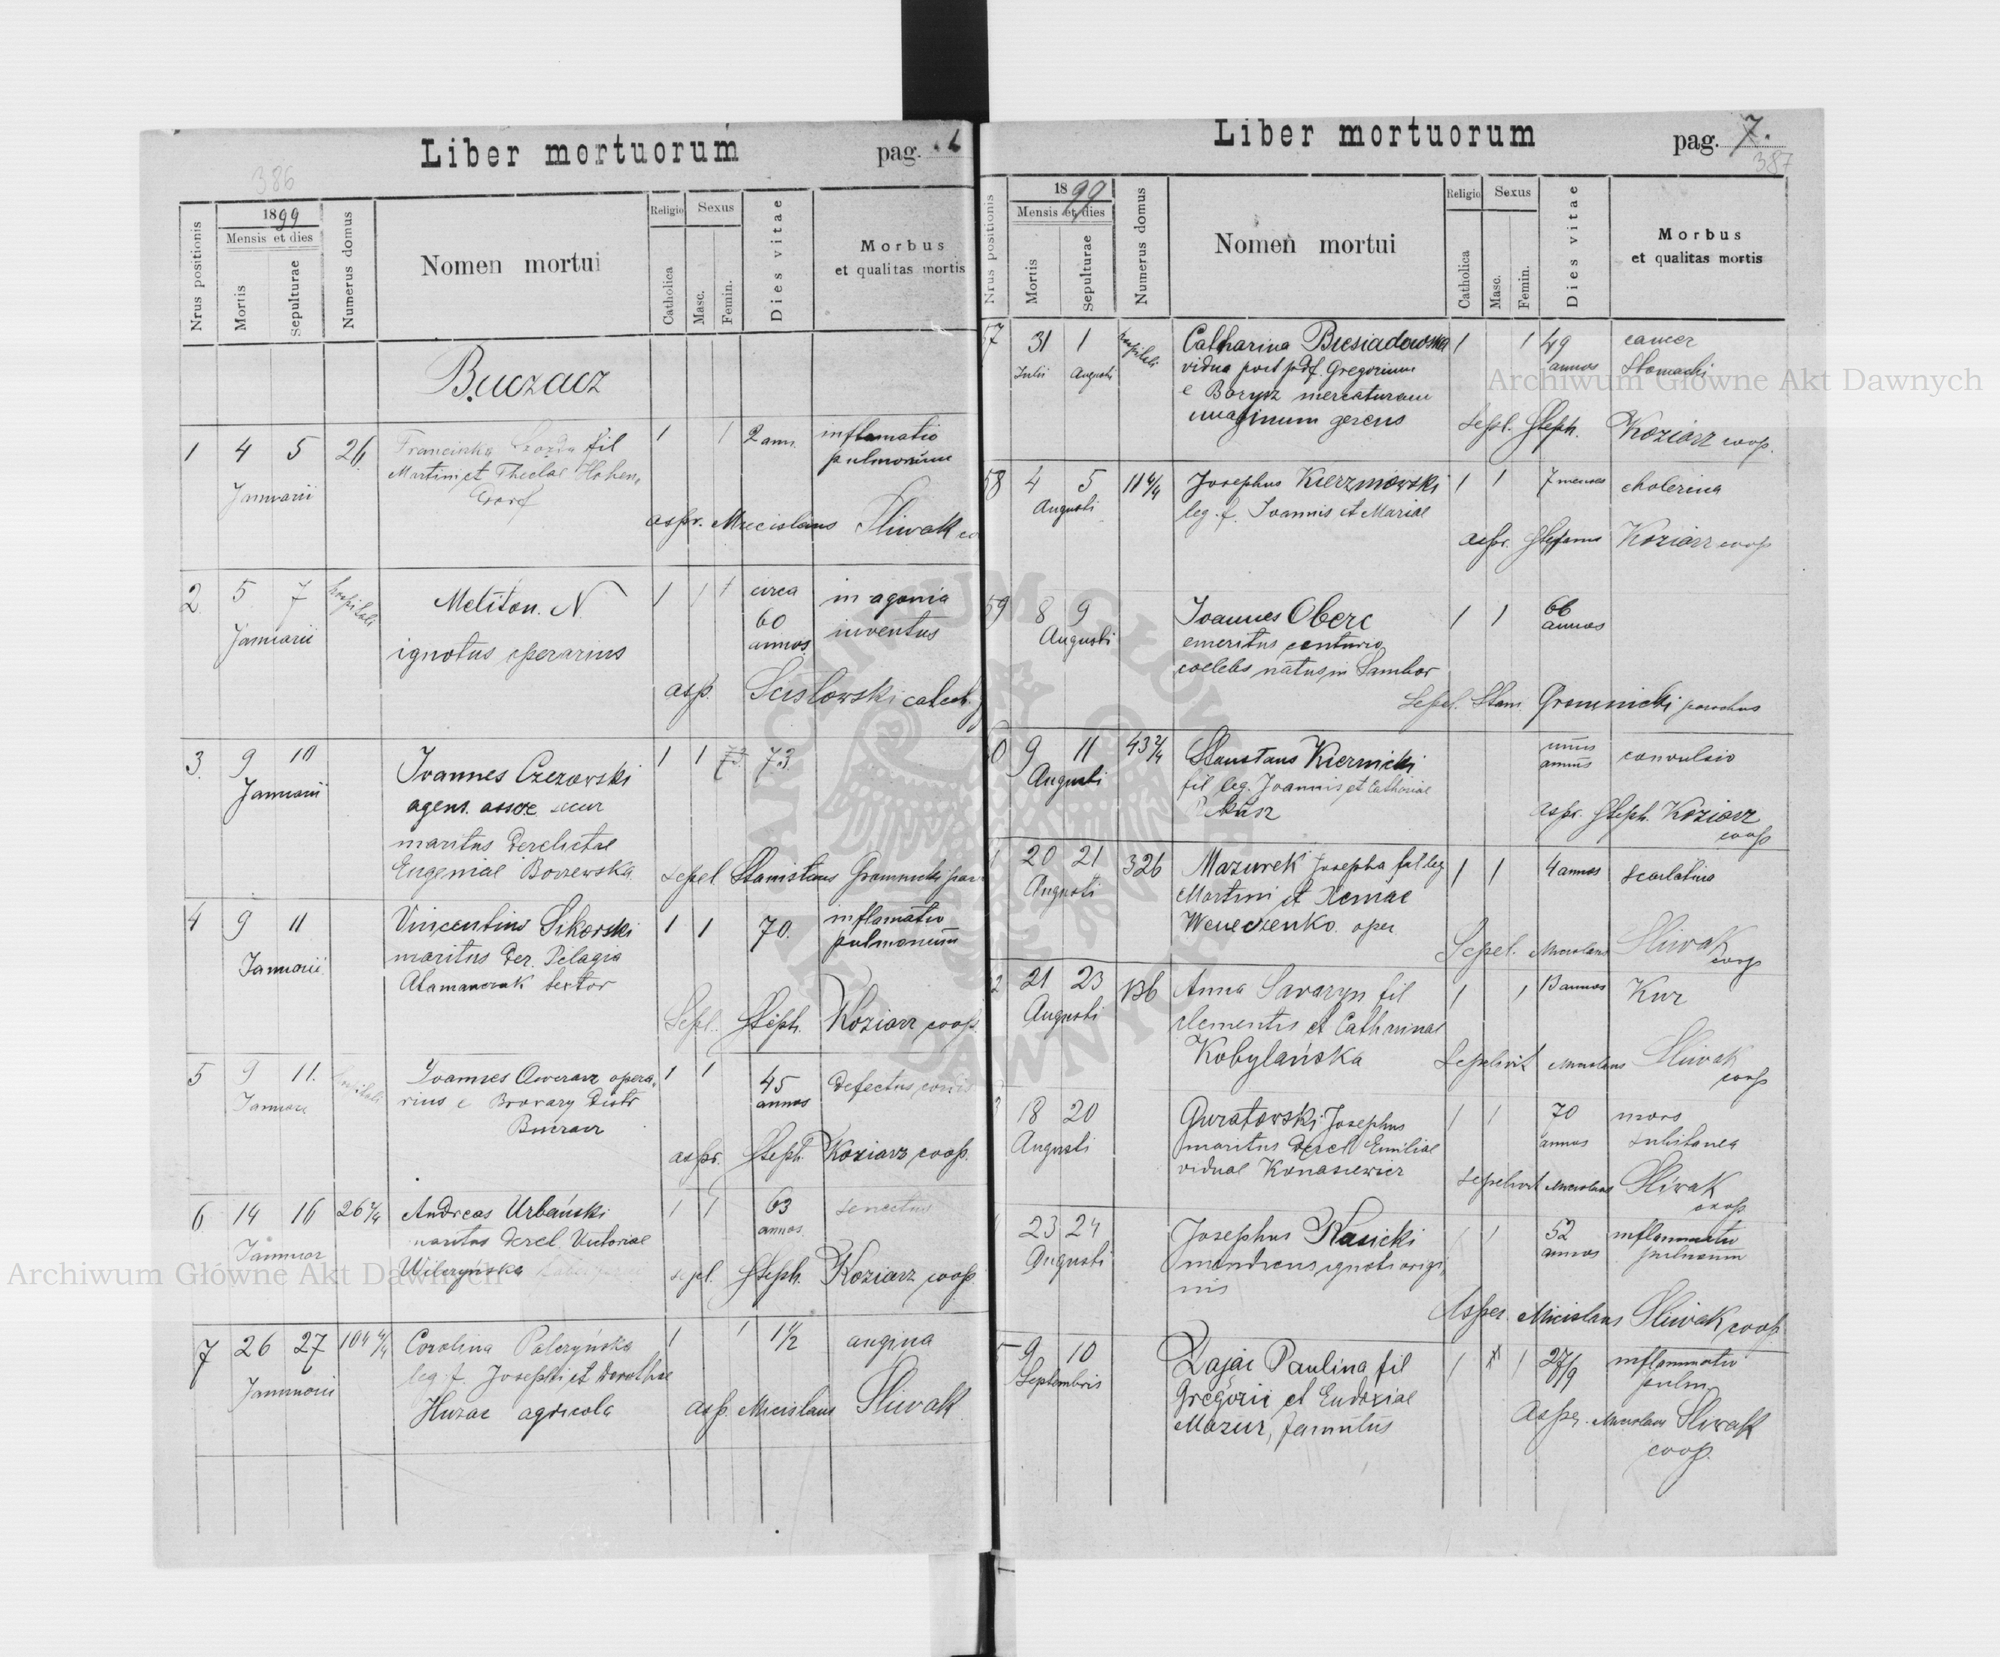 Liber mortuorum pag.
386
Nrus positionis
1899
Mensis et dies
Mortis
Sepulturae
Numerus domus
Nomen mortui
Religio
Catholica
Sexus
Masc.
Femin.
Dies vitae
Morbus
et qualitas mortis
Buczacz
1 4 5 26 fil 1 1 2 ann. inflamatio
Martini et Theclae pulmonum
Januarii
aspr. Miecislaus Śliwak
2 5 7 hospitali Meliton. N 1 1 1 circa in agonia
Januarii 60 inventus
ignotus operarius annos
asp. Ścisłowski catech.
3. 9 10 Joannes Czezowski 1 1 73 73.
Januarii
agens
maritus derelictae
Eugeniae Borzewska sepel Stanislaus Gromnicki
4 9 11 Vincentius Sikorski 1 1 70. inflamatio
maritus der. Pelagia pulmonum
Januarii
Atamanczuk textor
Sepl. Steph. Koziarz coop.
5 9 11. hospitali Joannes opera- 1 1 45 defectus
Januarii rius e annos
Buczacz
aspr. Steph. Koziarz coop.
6 14 16 26 2/4 Andreas Urbański 1 1 63 senectus
maritus derel. Victoriae annos
Januar
Wilczyńska sepl. Steph. Koziarz coop.
7 26 27 104 4/4 Carolina Palczyńska 1 1 1 1/2 angina
leg. f. Josephi et Dorothae
Januarii
Huzar agricola asp. Miecislaus Śliwak
Liber mortuorum pag. 7.
387
Nrus positionis
1899
Mensis et dies
Mortis
Sepulturae
Numerus domus
Nomen mortui
Religio
Catholica
Sexus
Masc.
Femin.
Dies vitae
Morbus
et qualitas mortis
57 31 1 hospitali Catharina Biesiadowska 1 1 49 cancer
Julii Augusti vidua post p.df. Gregorium annos stomachi
e Barysz mercaturam
imaginum gerens Sepl. Steph. Koziarz coop.
58 4 5 11 4/4 Josephus Kierzniowski 1 1 7 menses cholerina
Augusti leg. f. Joannis et Mariae
aspr. Stefanus Koziarz coop
59 8 9 Joannes Oberc 1 1 66
Augusti emeritus centurio annos
coelebs natus in Sambor
Sepel. Stani. Gromnicki parochus
0 9 11 43 2/4 Stanislaus Kiernicki unus convulsio
Augusti fil leg. Joannis et Catharinae annus
aspr. Steph. Koziarz
coop
20 21 326 Mazurek Josepha fil leg 1 1 4 annos scarlatina
Augusti Martini et Xeniae
Weneczenko oper
Sepel. Miecislaus Śliwak
coop
2 21 23 136 Anna Savaryn fil 1 1 13 annos Kur
Augusti Clementis et Catharinae
Kobylańska Sepelivit Miecislaus Śliwak
coop
18 20 Guratowski Josephus 1 1 70 mors
Augusti maritus derel Emiliae annos subitanea
viduae Konasiewicz
Sepelivit Miecislaus Śliwak
coop
23 24 Josephus Kasicki 1 1 52 inflammatio
Augusti mendicus ignoti origi- annos pulmonum
nis
Asper. Miecislaus Śliwak coop
5 9 10 Zając Paulina fil 1 1 27/9 inflammatio
Septembris Gregorii et Eudoxiae pulm.
Mazur, famulus Asper. Miecislaus Śliwak
coop.
Archiwum Główne Akt Dawnych
Archiwum Główne Akt Dawnych
ARCHIWUM GŁÓWNE AKT DAWNYCH